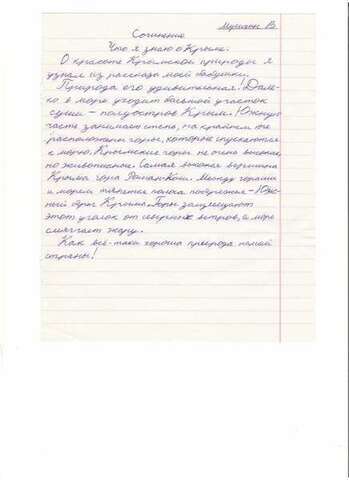 Мухин В
Сочинение
Что я знаю о Крыме.
О красоте Крымской природы я
узнал из рассказа моей бабушки.
Природа его удивительная! Дале-
ко в море уходит большой участок
суши – полуостров Крым! Южную
часть занимает степь, на крайнем юге
расположены горы, которые спускаются
к морю. Крымские горы не очень высокие,
но живописные. Самая высокая вершина
Крыма гора Роман-Кош. Между горами
и морем тянется полоса побережья – Юж-
ный берег Крыма. Горы защищают
этот уголок от северных ветров, а море
смягчает жару.
Как всё-таки хороша природа нашей
страны!